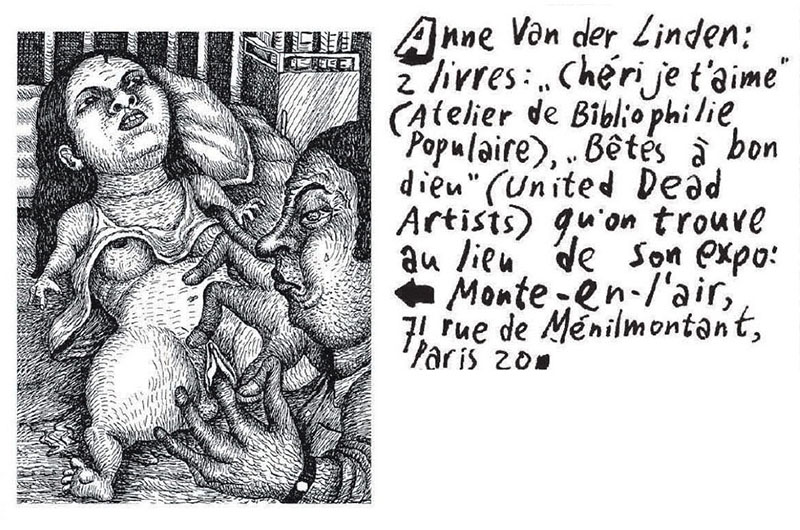 Anne Van der Linden:
2 livres: „Chéri je t'aime"
(Atelier de Bibliophilie
Populaire), „Bêtes à bon
dieu" (United Dead
Artists) qu'on trouve
au lieu de son expo:
← Monte-en-l'air,
71 rue de Ménilmontant,
Paris 20.